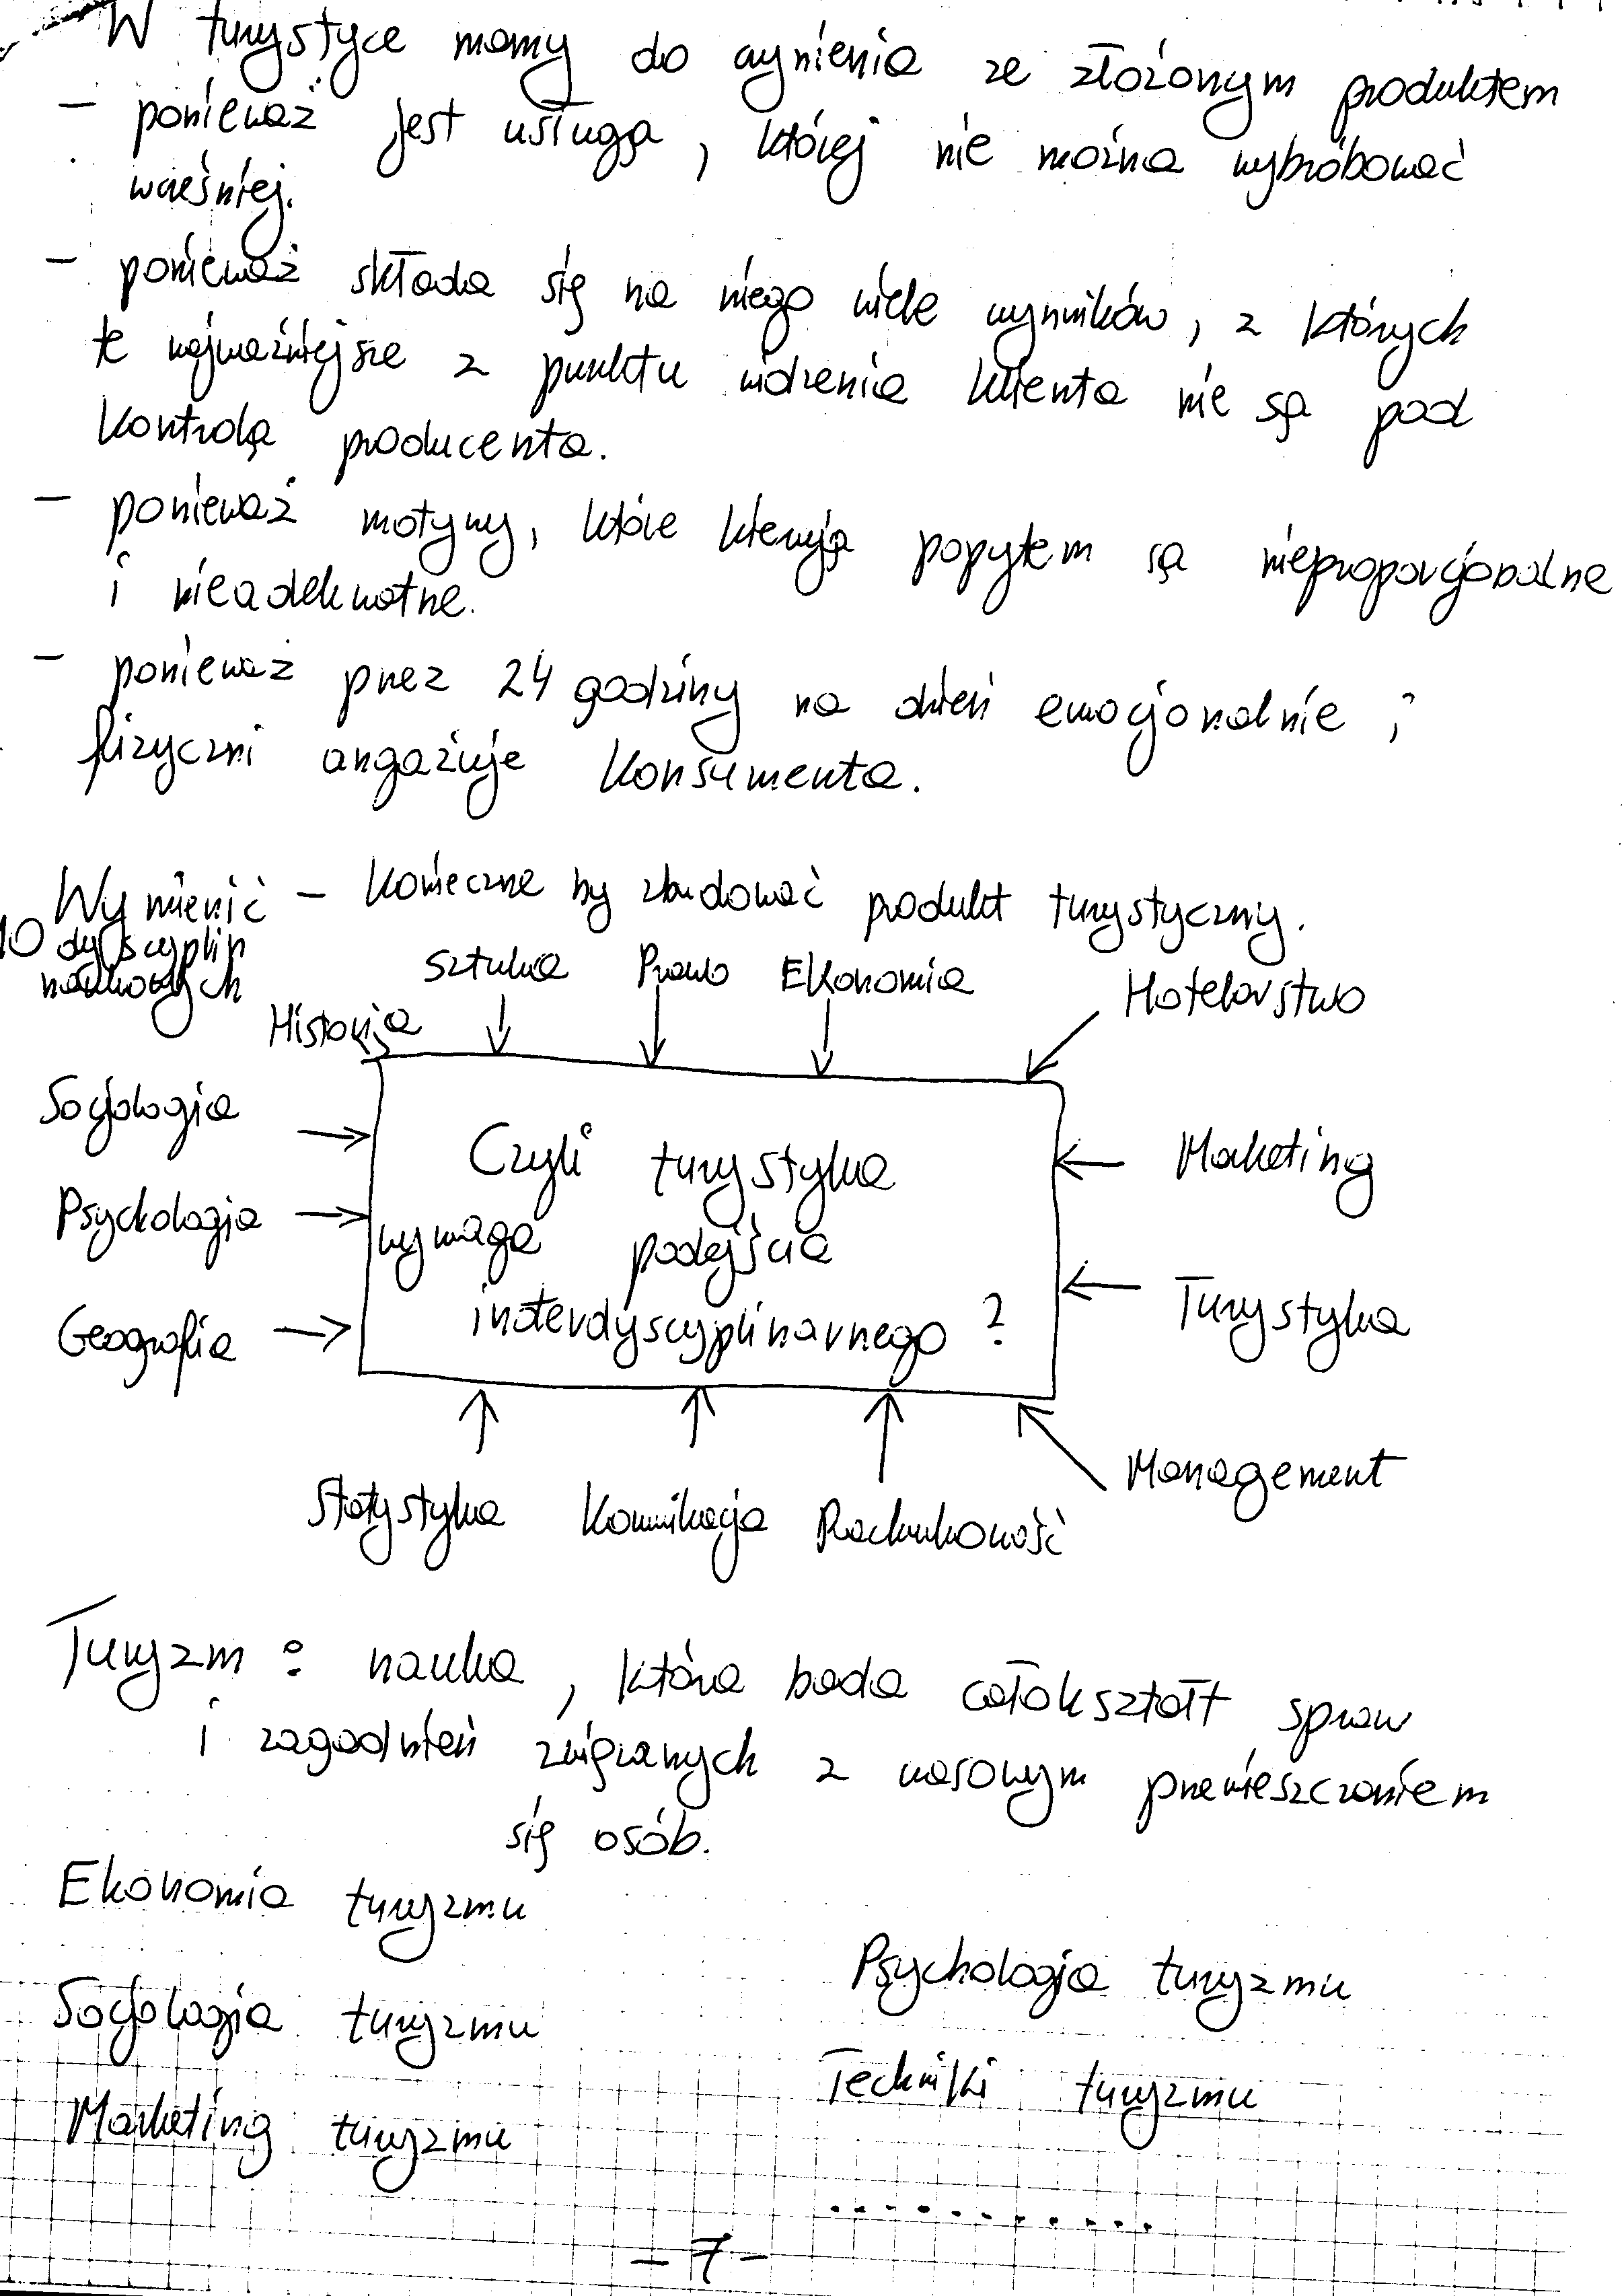 W turystyce mamy do czynienia ze złożonym produktem
- ponieważ jest usługą, której nie można wypróbować
wcześniej.
- ponieważ składa się na niego wiele czynników, z których
te najważniejsze z punktu widzenia klienta nie są pod
kontrolą producenta.
- ponieważ motywy, które kierują popytem są nieproporcjonalne
i nieadekwatne.
- ponieważ przez 24 godziny na dzień emocjonalnie i
fizyczni angażuje konsumenta.
Wymienić - konieczne by zbudować produkt turystyczny.
10 dyscyplin
naukowych
Sztuka Prawo Ekonomia Hotelarstwo
Historia
Socjologia
Psychologia
Geografia
Czyli turystyka
wymaga podejścia
interdyscyplinarnego ?
Marketing
Turystyka
Management
Statystyka Komunikacja Rachunkowość
Turyzm : nauka, która bada całokształt spraw
i zagadnień związanych z masowym przemieszczaniem
się osób.
Ekonomia turyzmu
Psychologia turyzmu
Socjologia turyzmu
Techniki turyzmu
Marketing turyzmu
..........
- 7 -